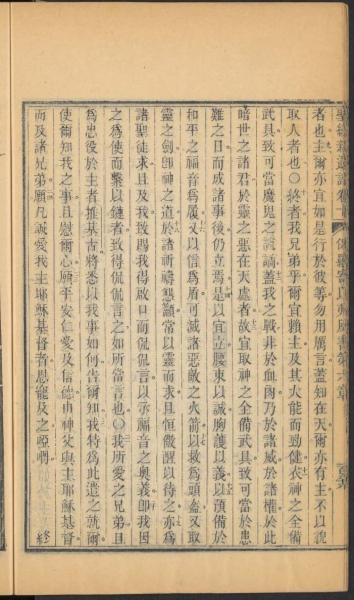 者也主爾亦宜如是行於彼等勿用厲言蓋知在天爾亦有主不以貌
取人者也〇終者我兄弟乎爾宜賴主及其大能而勁健衣神之全備
武具致可當魔鬼之詭譎蓋我之戰非於血肉乃於諸威於諸權於此
暗世之諸君於靈之惡在天處者故宜取神之全備武具致可當於患
難之日而成諸事後仍立焉是以宜立腰束以誠胸護以義以預備於
和平之福音為履又以信為盾可滅諸惡敵之火箭以救為頭盔又取
靈之劍即神之道於諸祈禱懇籲常以靈而求且恒儆醒以待之亦為
諸聖徒求且及我致賜我得啟口而侃侃言以示福音之奧義即我因
之為使而繫以鏈者致得侃侃言之如所當言也〇我所愛之兄弟且
為忠役於主者推基古將悉以我事如何告爾知我特為此遣之就爾
使爾知我之事且慰爾心願平安仁愛及信德由神父與主耶穌基督
而及諸兄弟願凡誠愛我主耶穌基督者恩寵及之啞𠵽 終